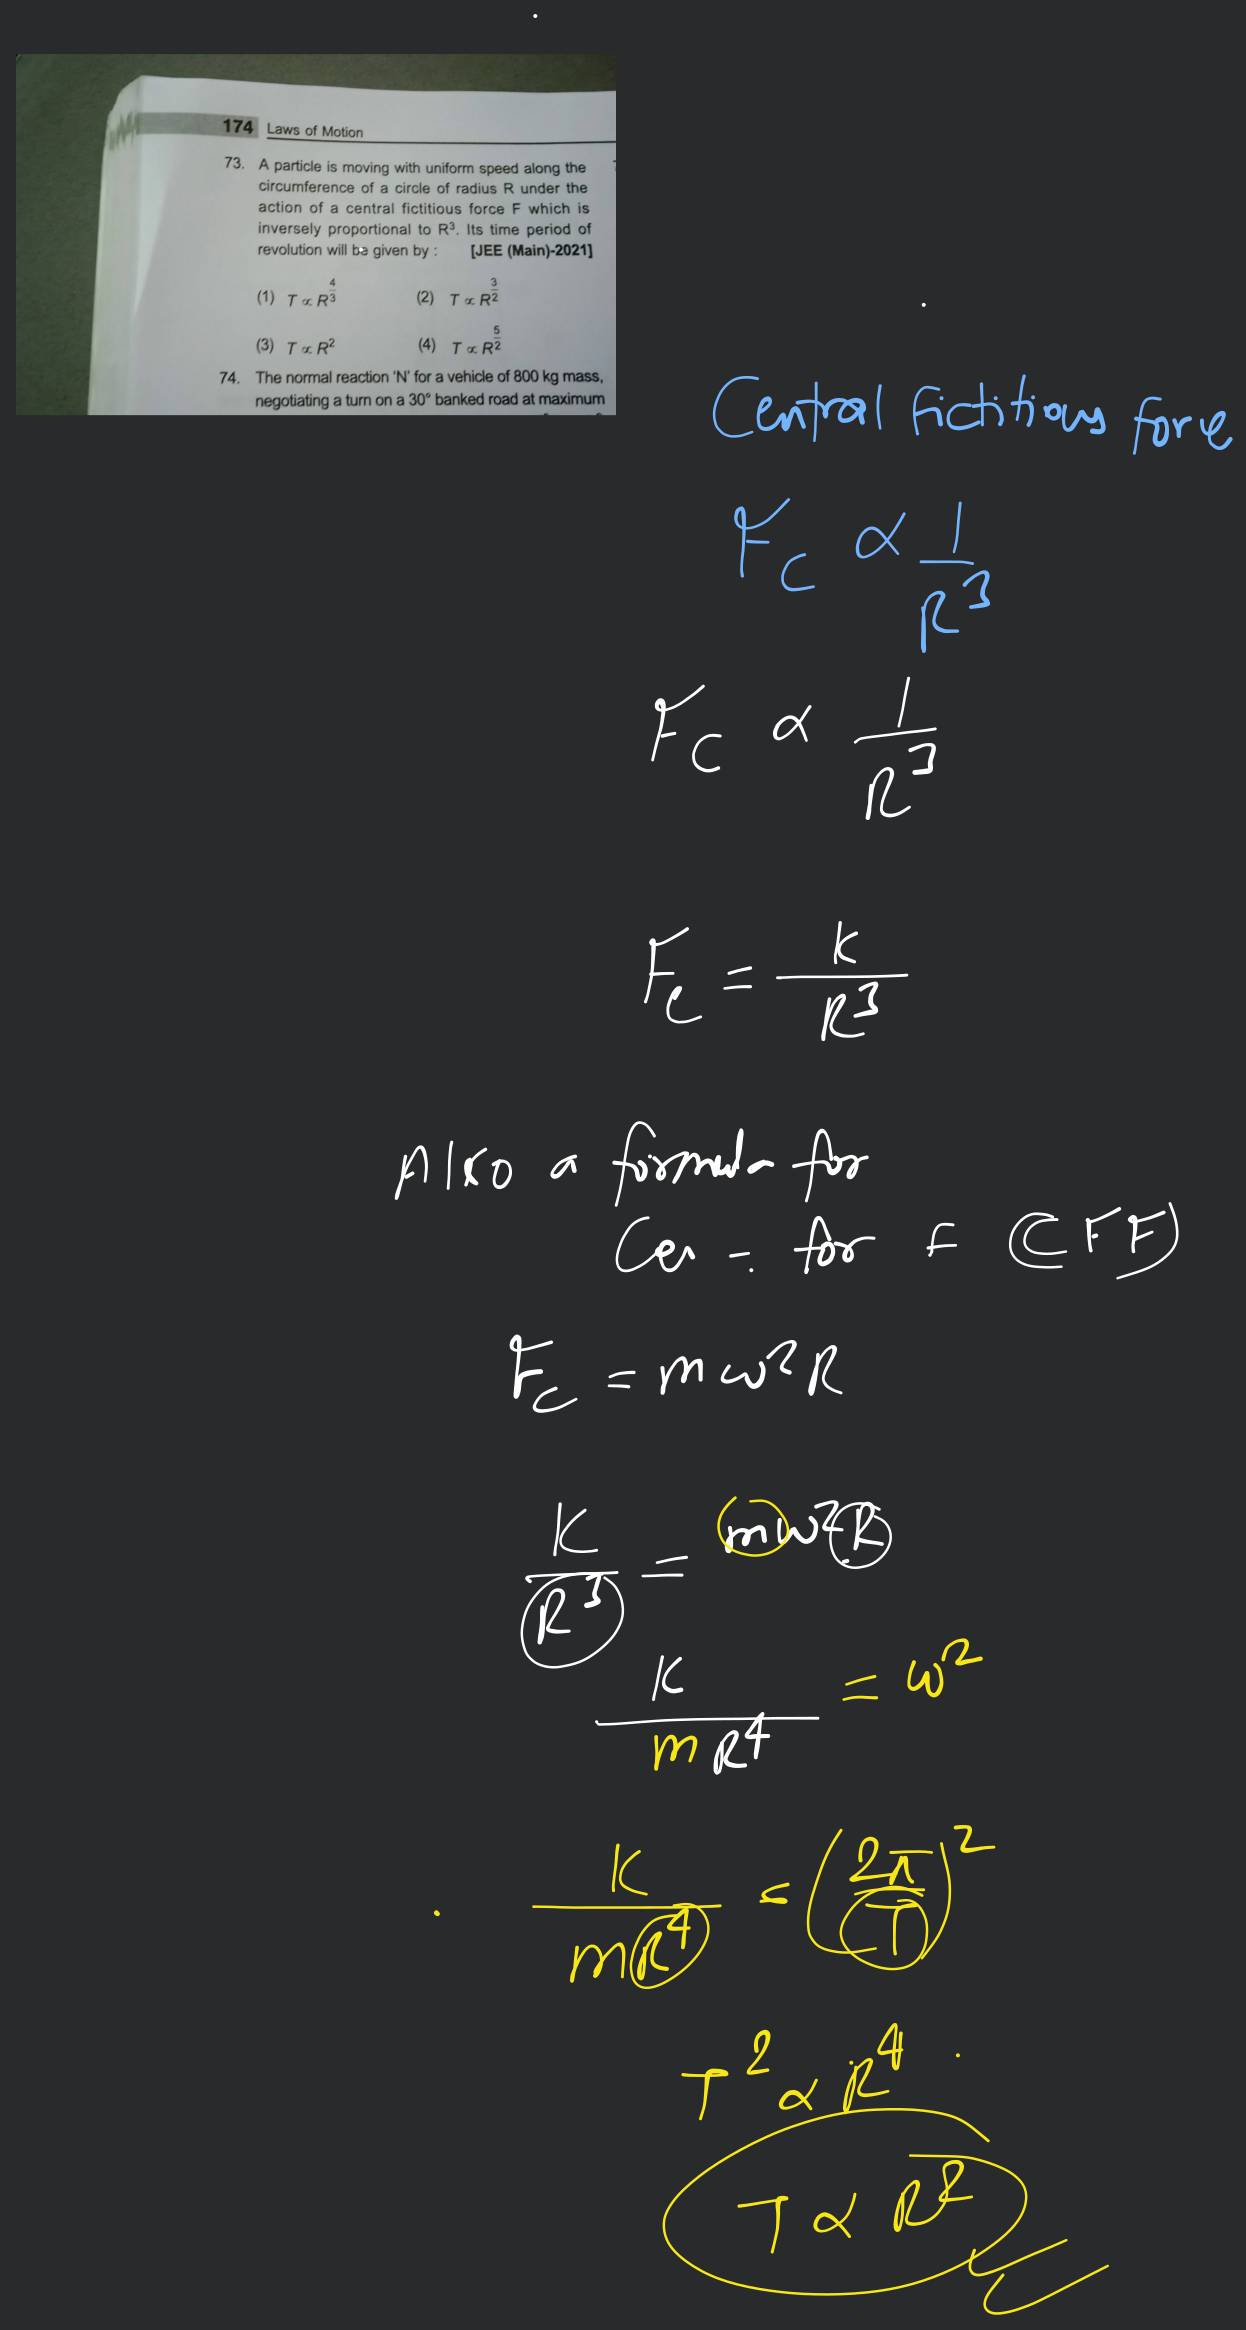 174 Laws of Motion
73. A particle is moving with uniform speed along the
circumference of a circle of radius R under the
action of a central fictitious force F which is
inversely proportional to R³. Its time period of
revolution will be given by : [JEE (Main)-2021]
(1) T ∝ R^(4/3) (2) T ∝ R^(3/2)
(3) T ∝ R² (4) T ∝ R^(5/2)
74. The normal reaction 'N' for a vehicle of 800 kg mass,
negotiating a turn on a 30° banked road at maximum
Central Fictitious force
F_C ∝ 1/R³
F_C ∝ 1/R³
F_C = K/R³
Also a formula for
Cen - for F (CFF)
F_C = mω²R
K/R³ = mω²R
K/(mR⁴) = ω²
K/(mR⁴) = (2π/T)²
T² ∝ R⁴
T ∝ R²